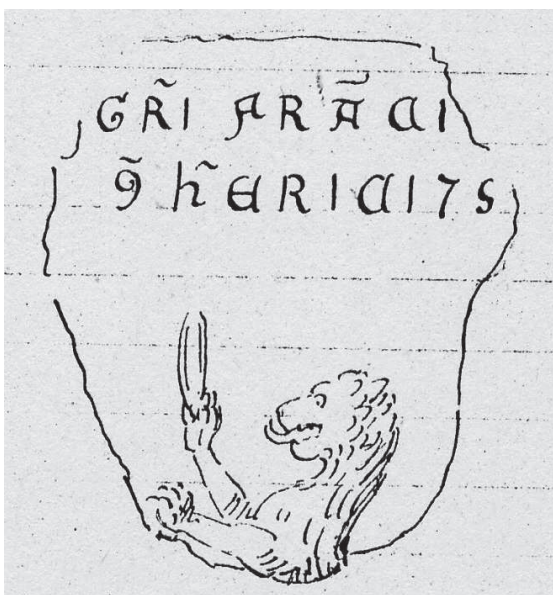 GR̃I FRÃCI
9̃ h̃ERICI7S